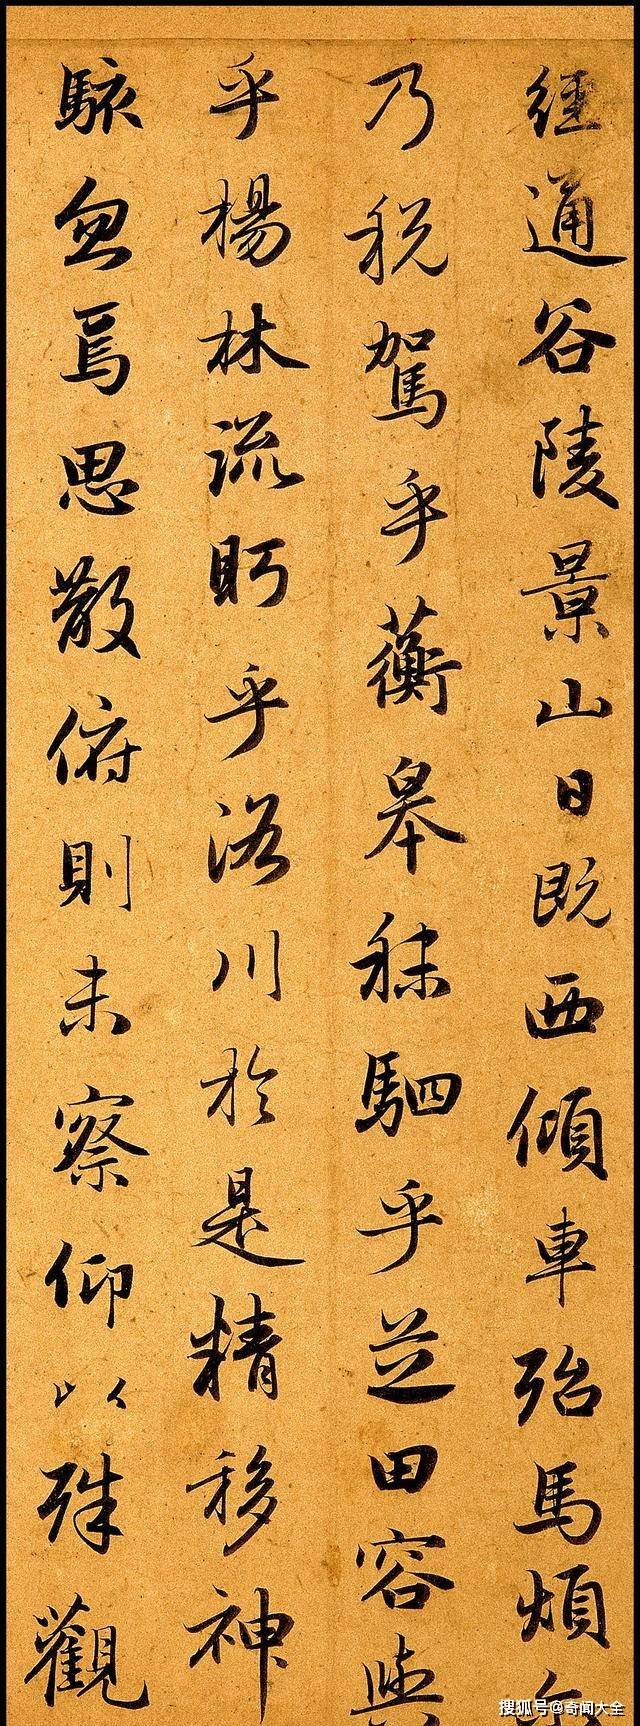 經通谷陵景山日既西傾車殆馬煩
乃税駕乎蘅皋秣駟乎芝田容與
乎楊林流眄乎洛川於是精移神
駭忽焉思散俯則未察仰以殊觀
搜狐号@奇闻大全